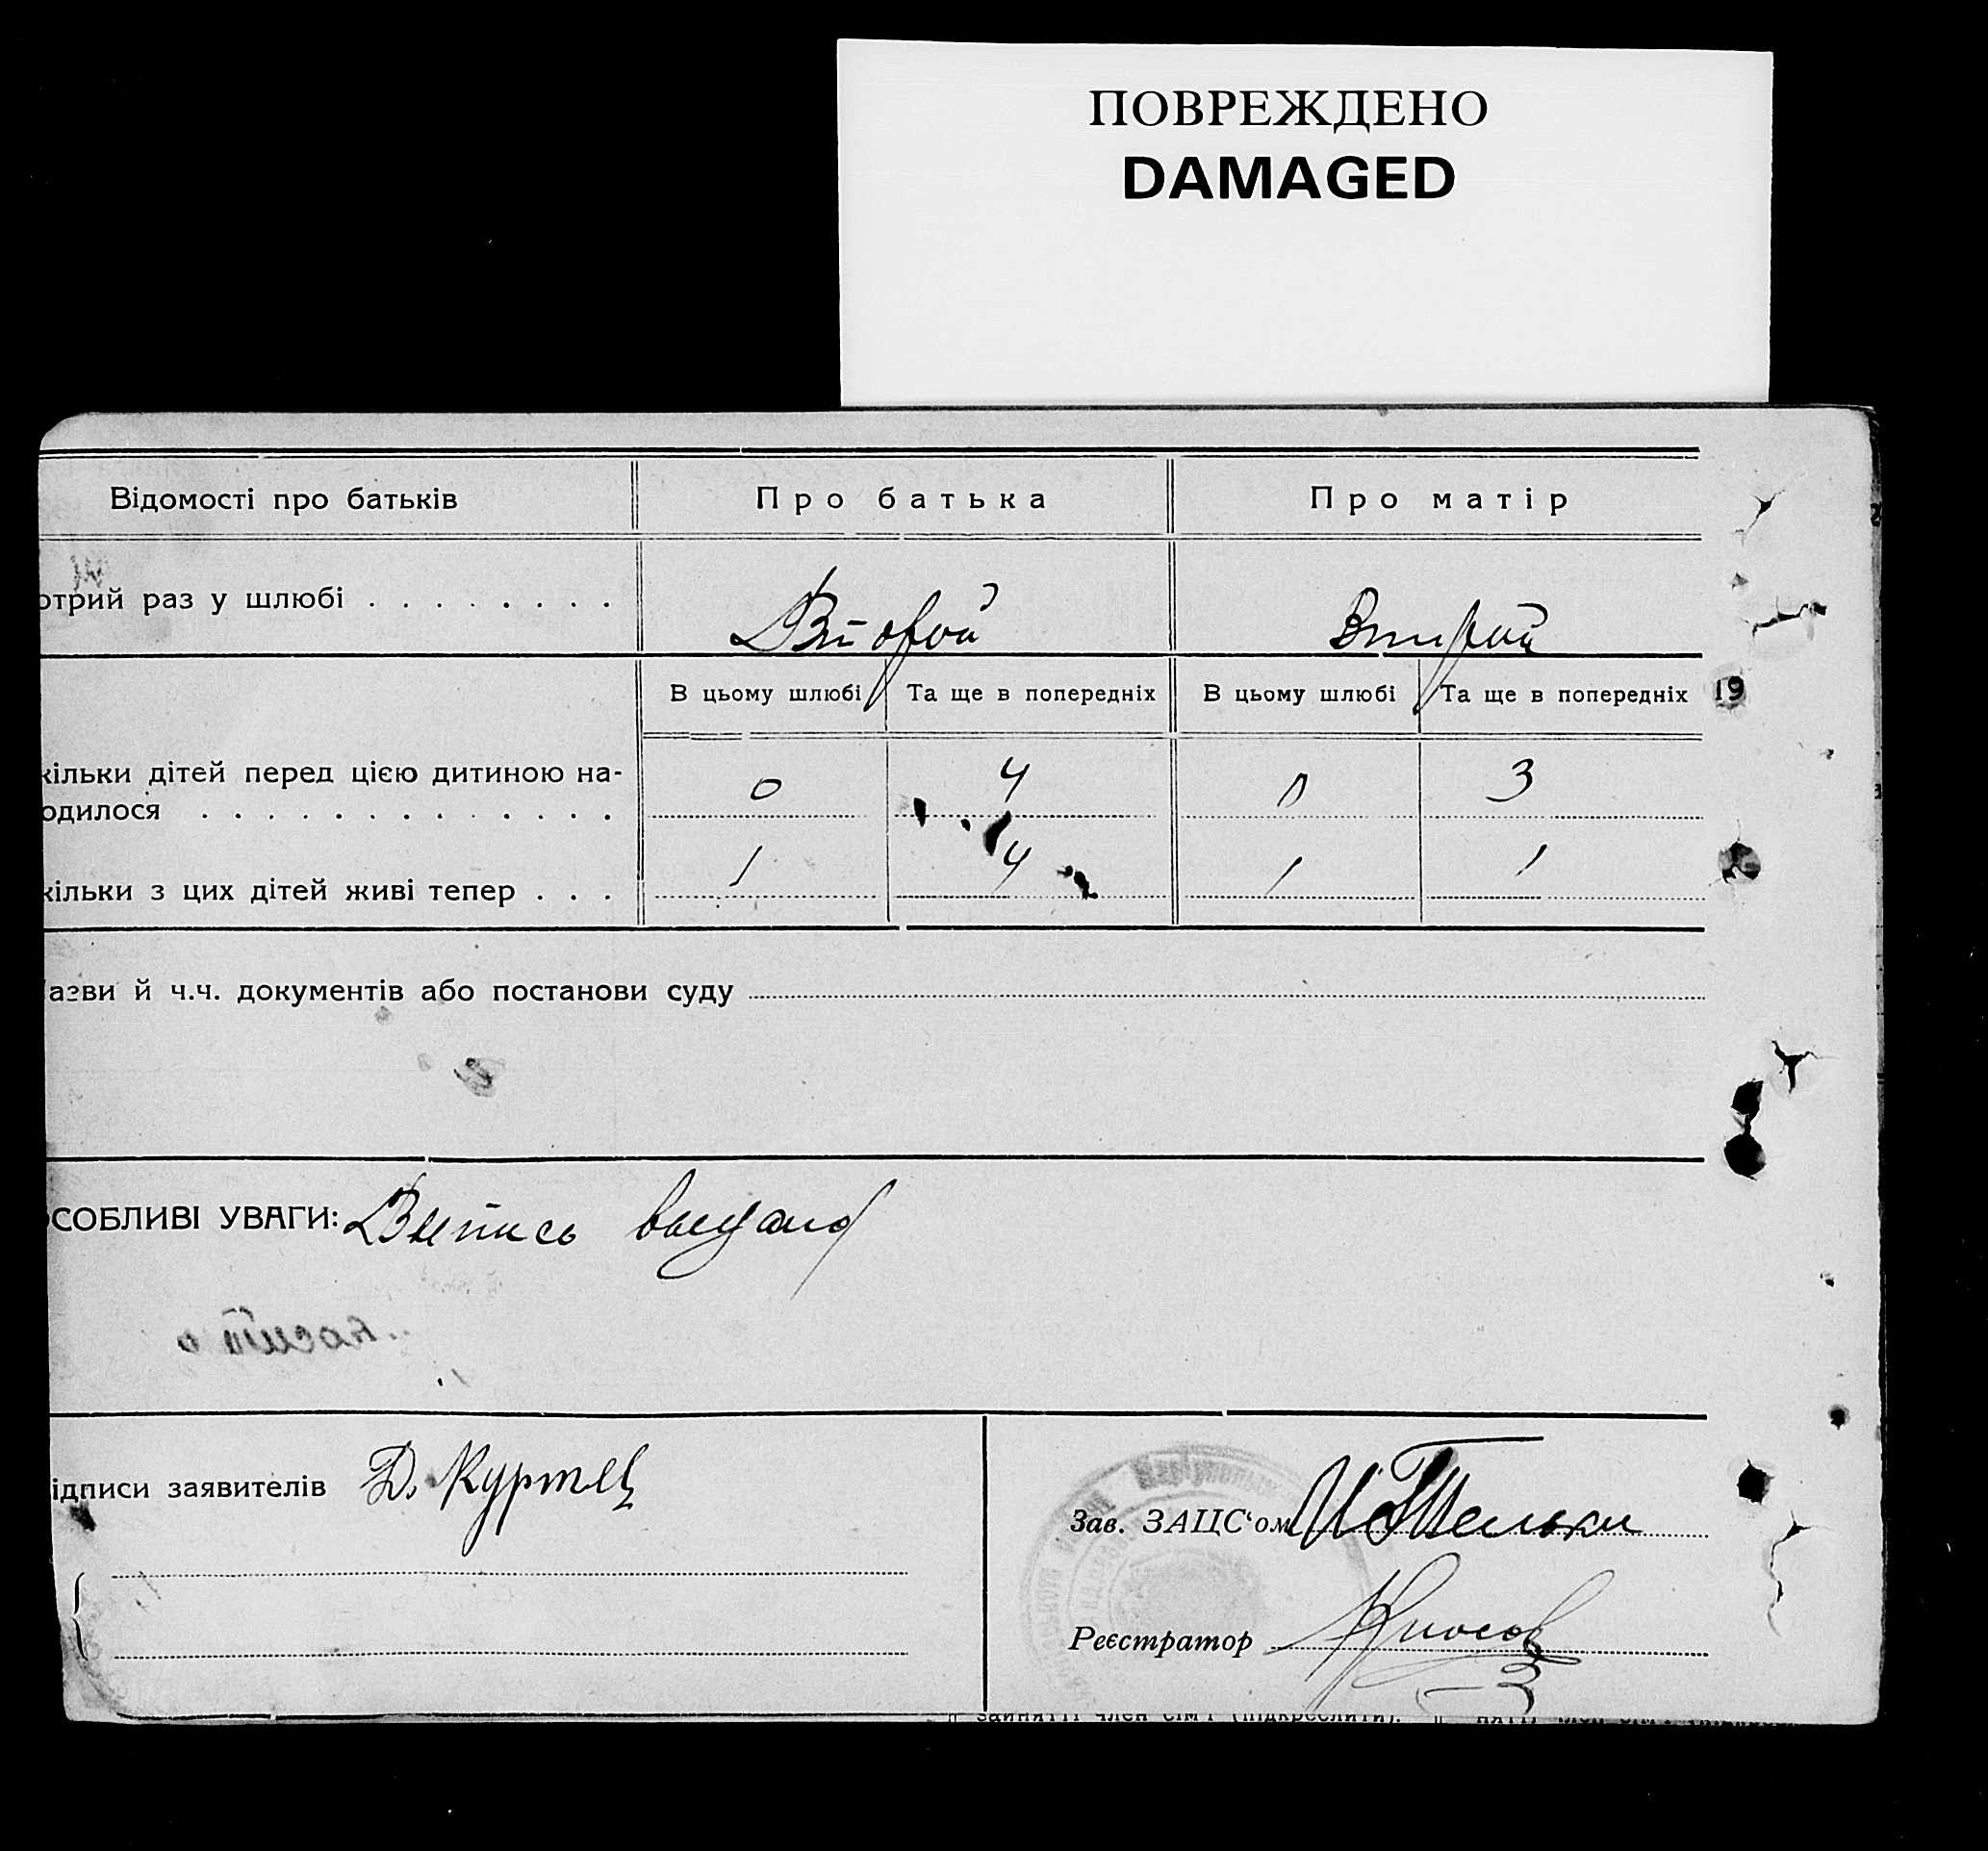 ПОВРЕЖДЕНО
DAMAGED
Відомості про батьків
Про батька
Про матір
отрий раз у шлюбі
Второй
Второй
В цьому шлюбі
Та ще в попередніх
В цьому шлюбі
Та ще в попередніх
19
кільки дітей перед цією дитиною на-
одилося
0
4
0
3
кільки з цих дітей живі тепер
1
4
1
1
азви й ч.ч. документів або постанови суду
СОБЛИВІ УВАГИ: Выпись выдана
ідписи заявителів Д. Куртец
Зав. ЗАЦС'ом
Реєстратор
зайняті член сім'ї (підкреслити).